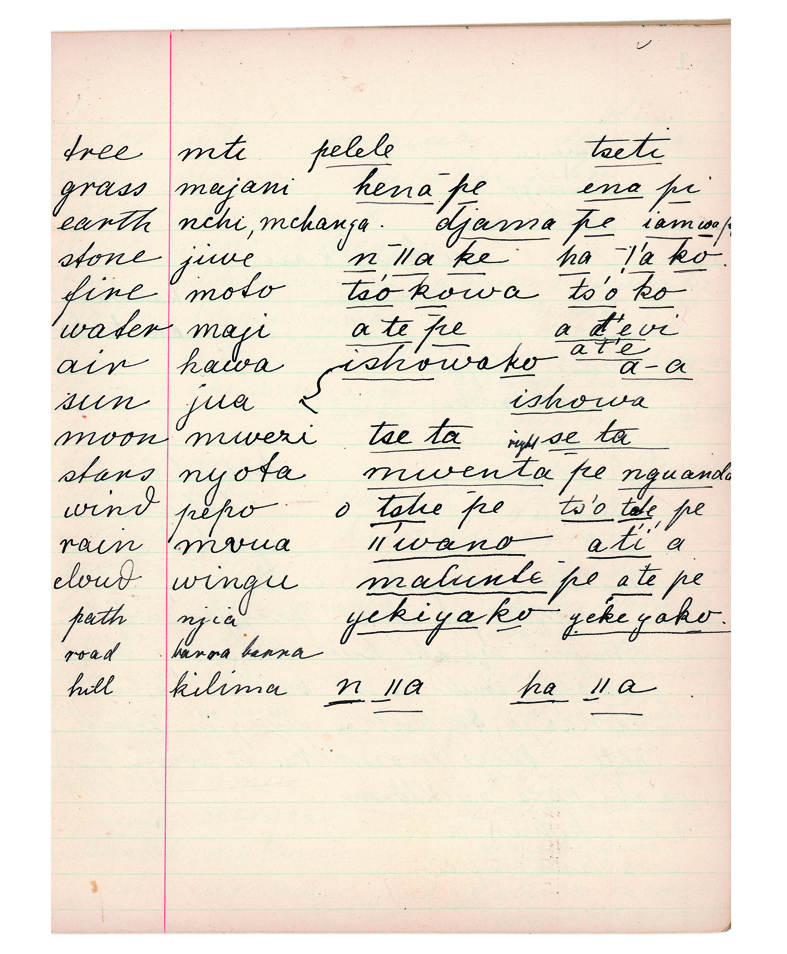 tree mti pelele tseti
grass majani henā pe ena pi
earth nchi, mchanga. djama pe iamwa
stone jiwe n ̄ǁa ke ha ̄ǃ'a ko.
fire moto ts'o kowa ts'o ko
water maji a te pe a t'e vi
at'e
air hawa ishowako a-a
sun jua ishowa
moon mwezi tse ta right se ta
stars nyota mwenta pe nguanda
wind pepo o tshe pe ts'o pe
rain mvua ǁ'iwano ati' a
cloud wingu malunte pe ate pe
path njia yekiyako yekeyako.
road barra barra
hill kilima n ǁa ha ǁa